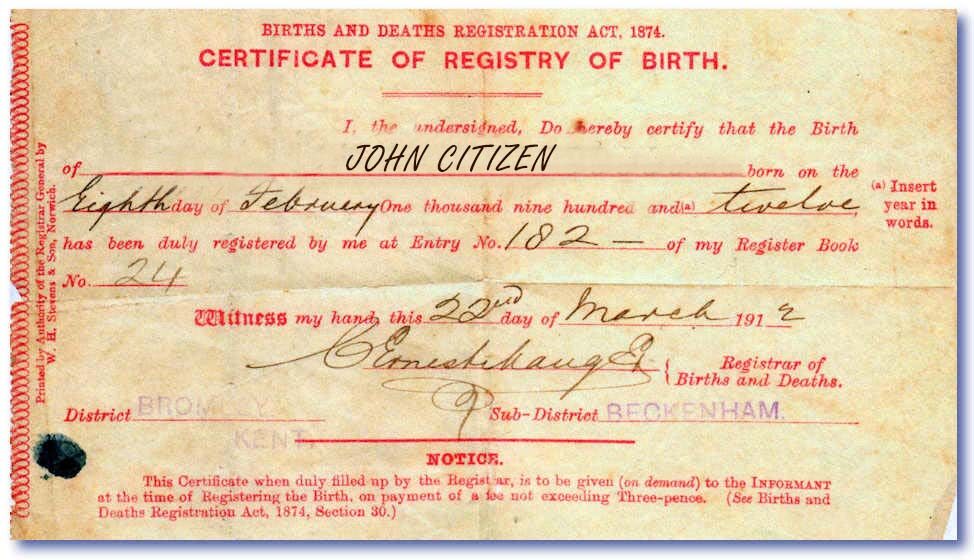 BIRTHS AND DEATHS REGISTRATION ACT, 1874.
CERTIFICATE OF REGISTRY OF BIRTH.
I, the undersigned, Do hereby certify that the Birth
of JOHN CITIZEN born on the
Eighth day of February One thousand nine hundred and (a) twelve,
has been duly registered by me at Entry No. 182 — of my Register Book
No. 24
Witness my hand, this 22nd day of March 1912
Registrar of
Births and Deaths.
District BROMLEY KENT. Sub-District BECKENHAM.
NOTICE.
This Certificate when duly filled up by the Registrar, is to be given (on demand) to the INFORMANT
at the time of Registering the Birth, on payment of a fee not exceeding Three-pence. (See Births and
Deaths Registration Act, 1874, Section 30.)
(a) Insert
year in
words.
Printed by Authority of the Registrar General by
W. H. Stevens & Son, Norwich.